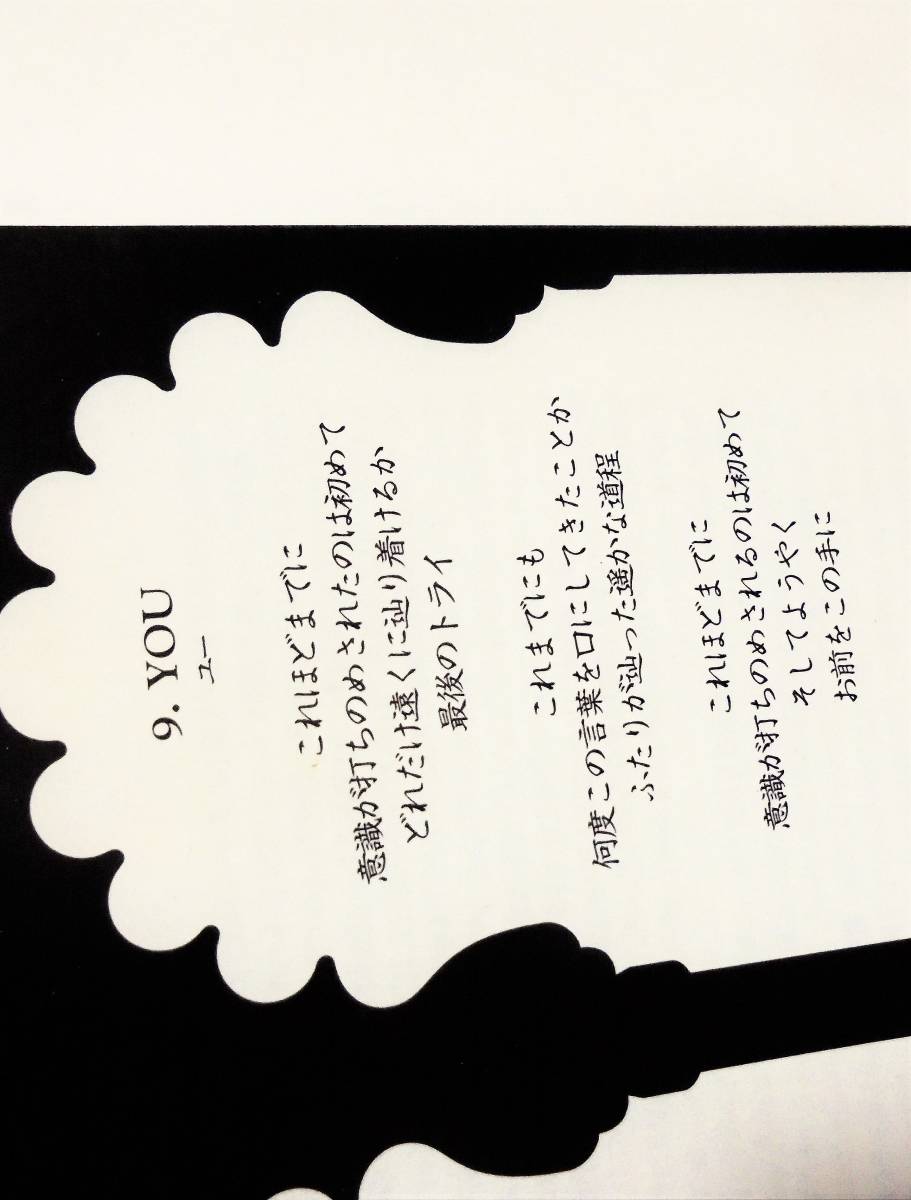 9. YOU
ユー
これほどまでに
意識が打ちのめされたのは初めて
どれだけ遠くに辿り着けるか
最後のトライ
これまでにも
何度この言葉を口にしてきたことか
ふたりが辿った遥かな道程
これほどまでに
意識が打ちのめされるのは初めて
そしてようやく
お前をこの手に